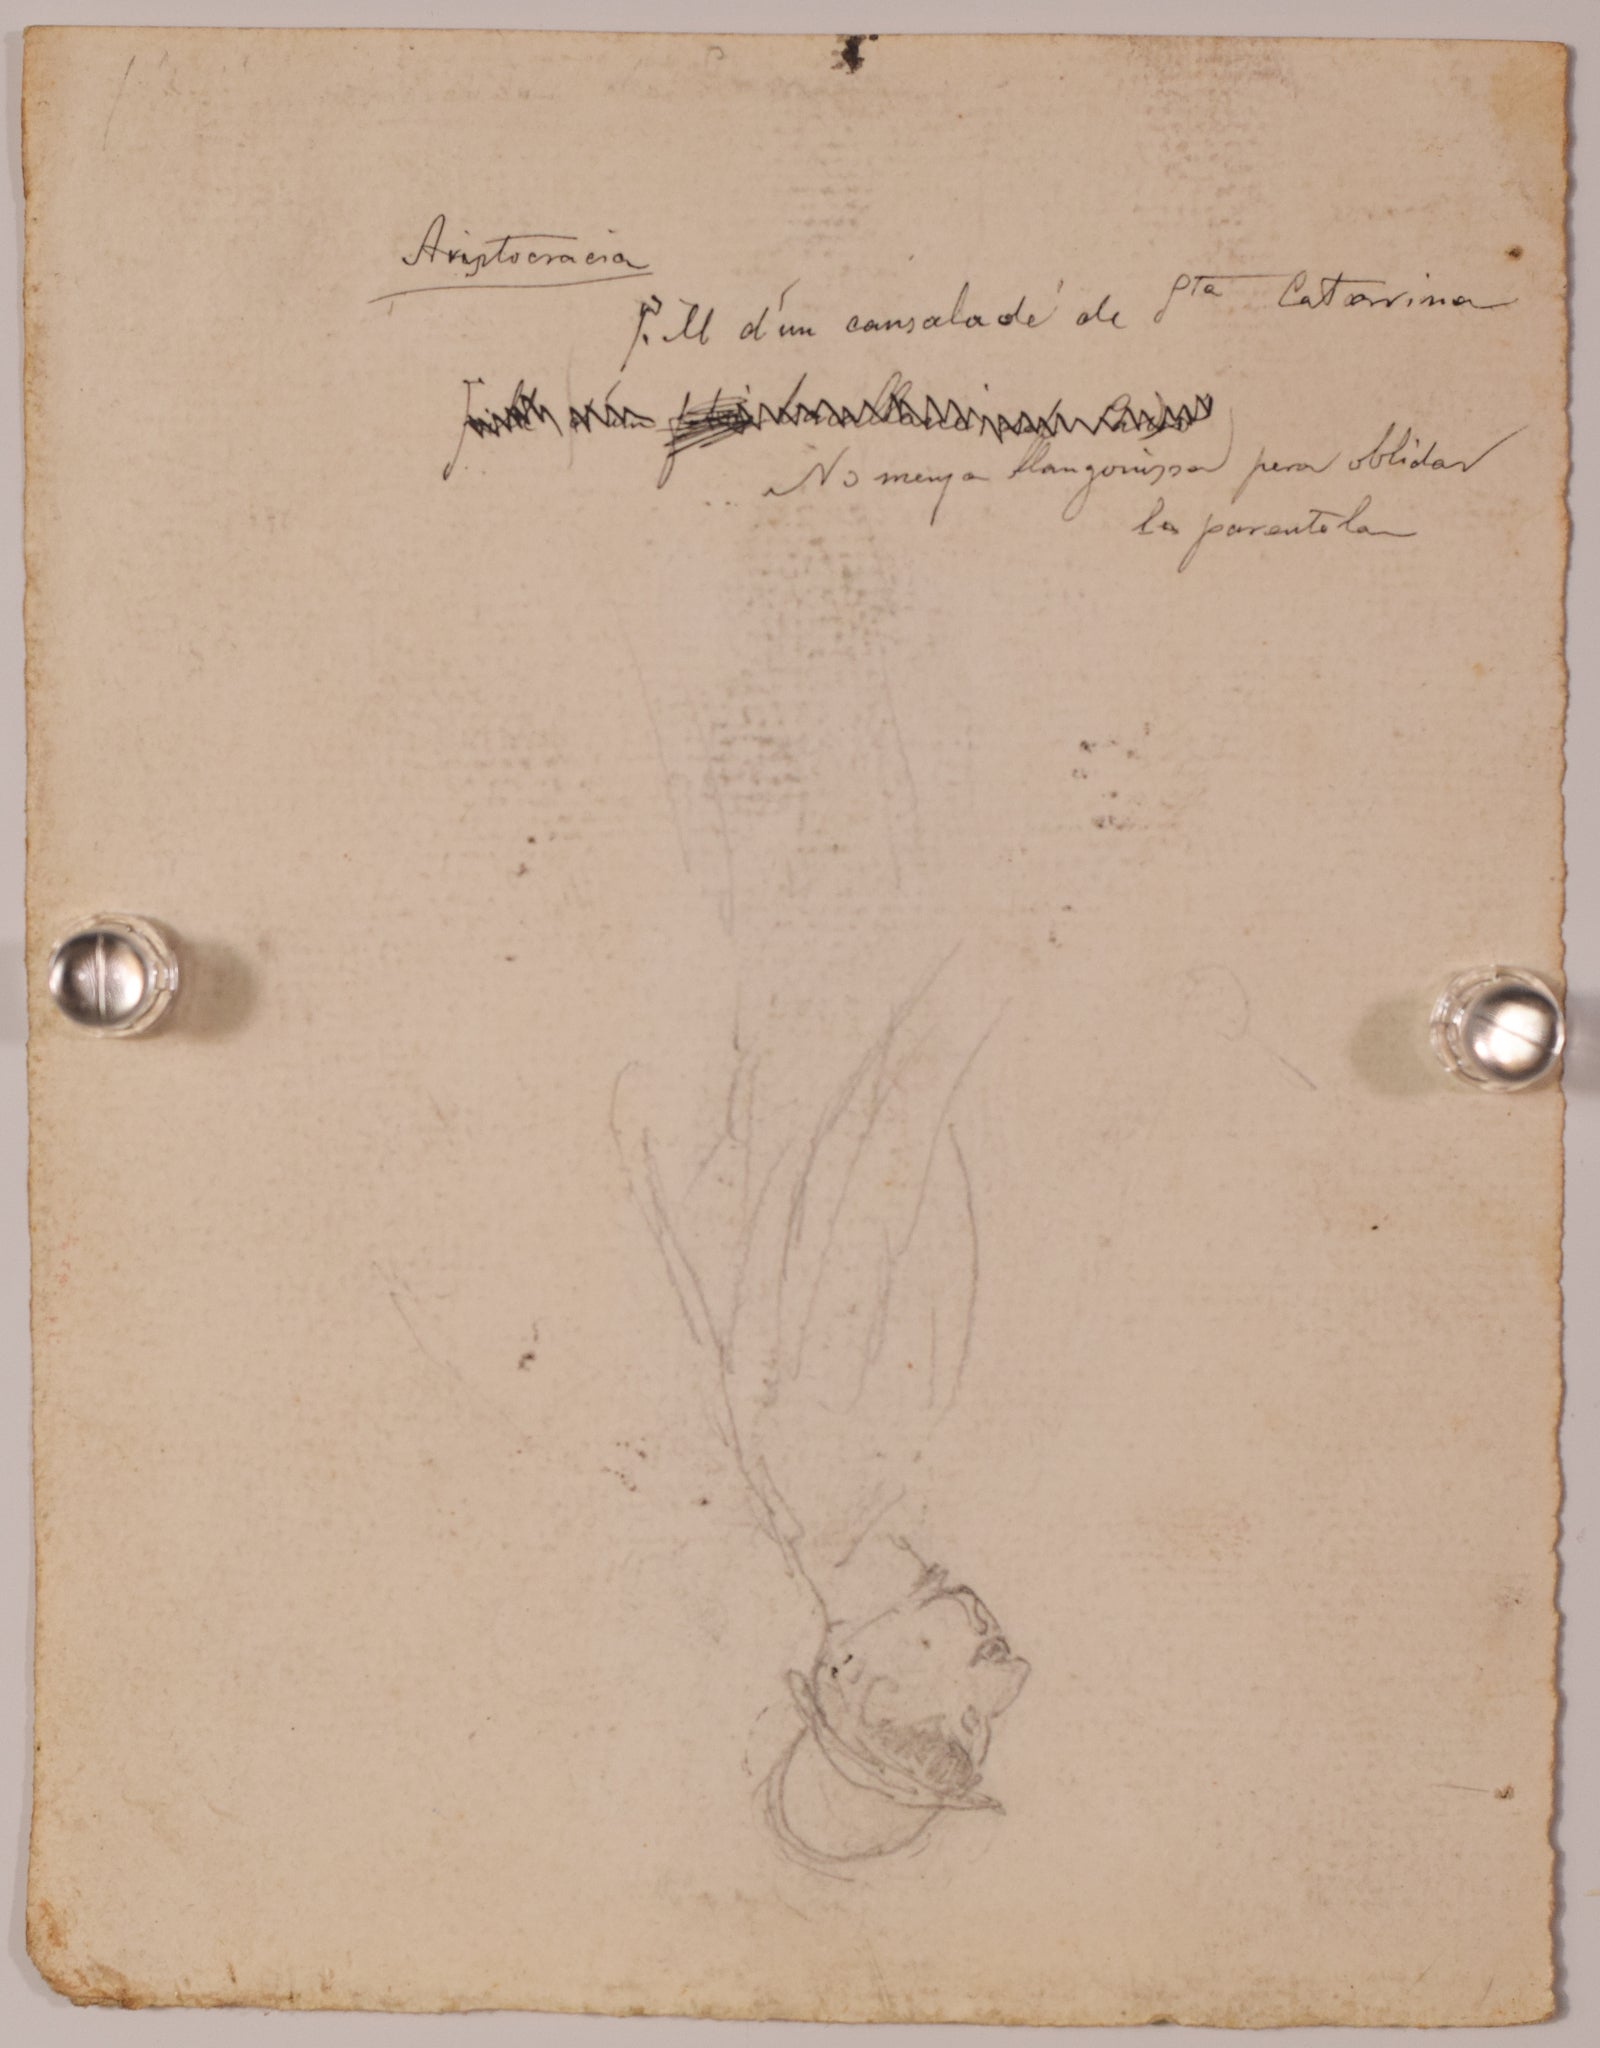 Aristocracia
Fill d'un cansaladé de Sta Catarina
.. No menja llangonissa pera oblidar
la parentela